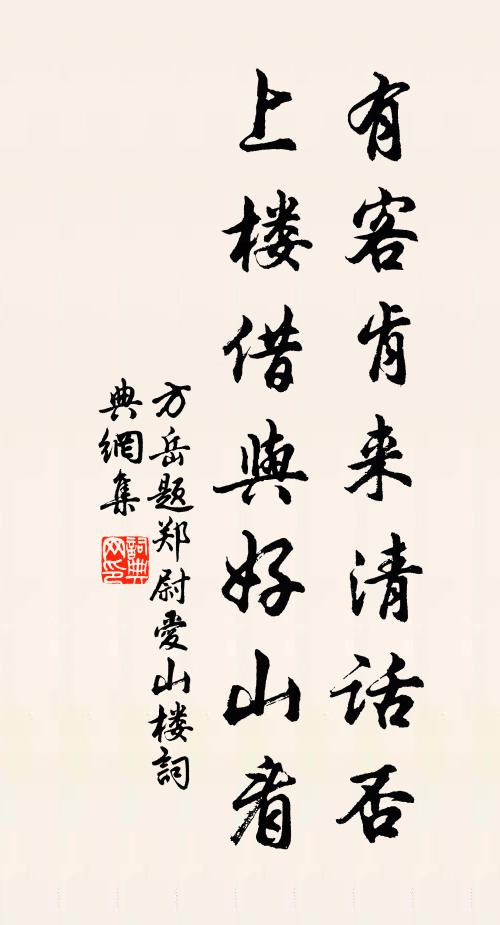 有客肯来清话否
上楼借與好山看
方岳题郑尉愛山楼詞
典網集
詞典网印